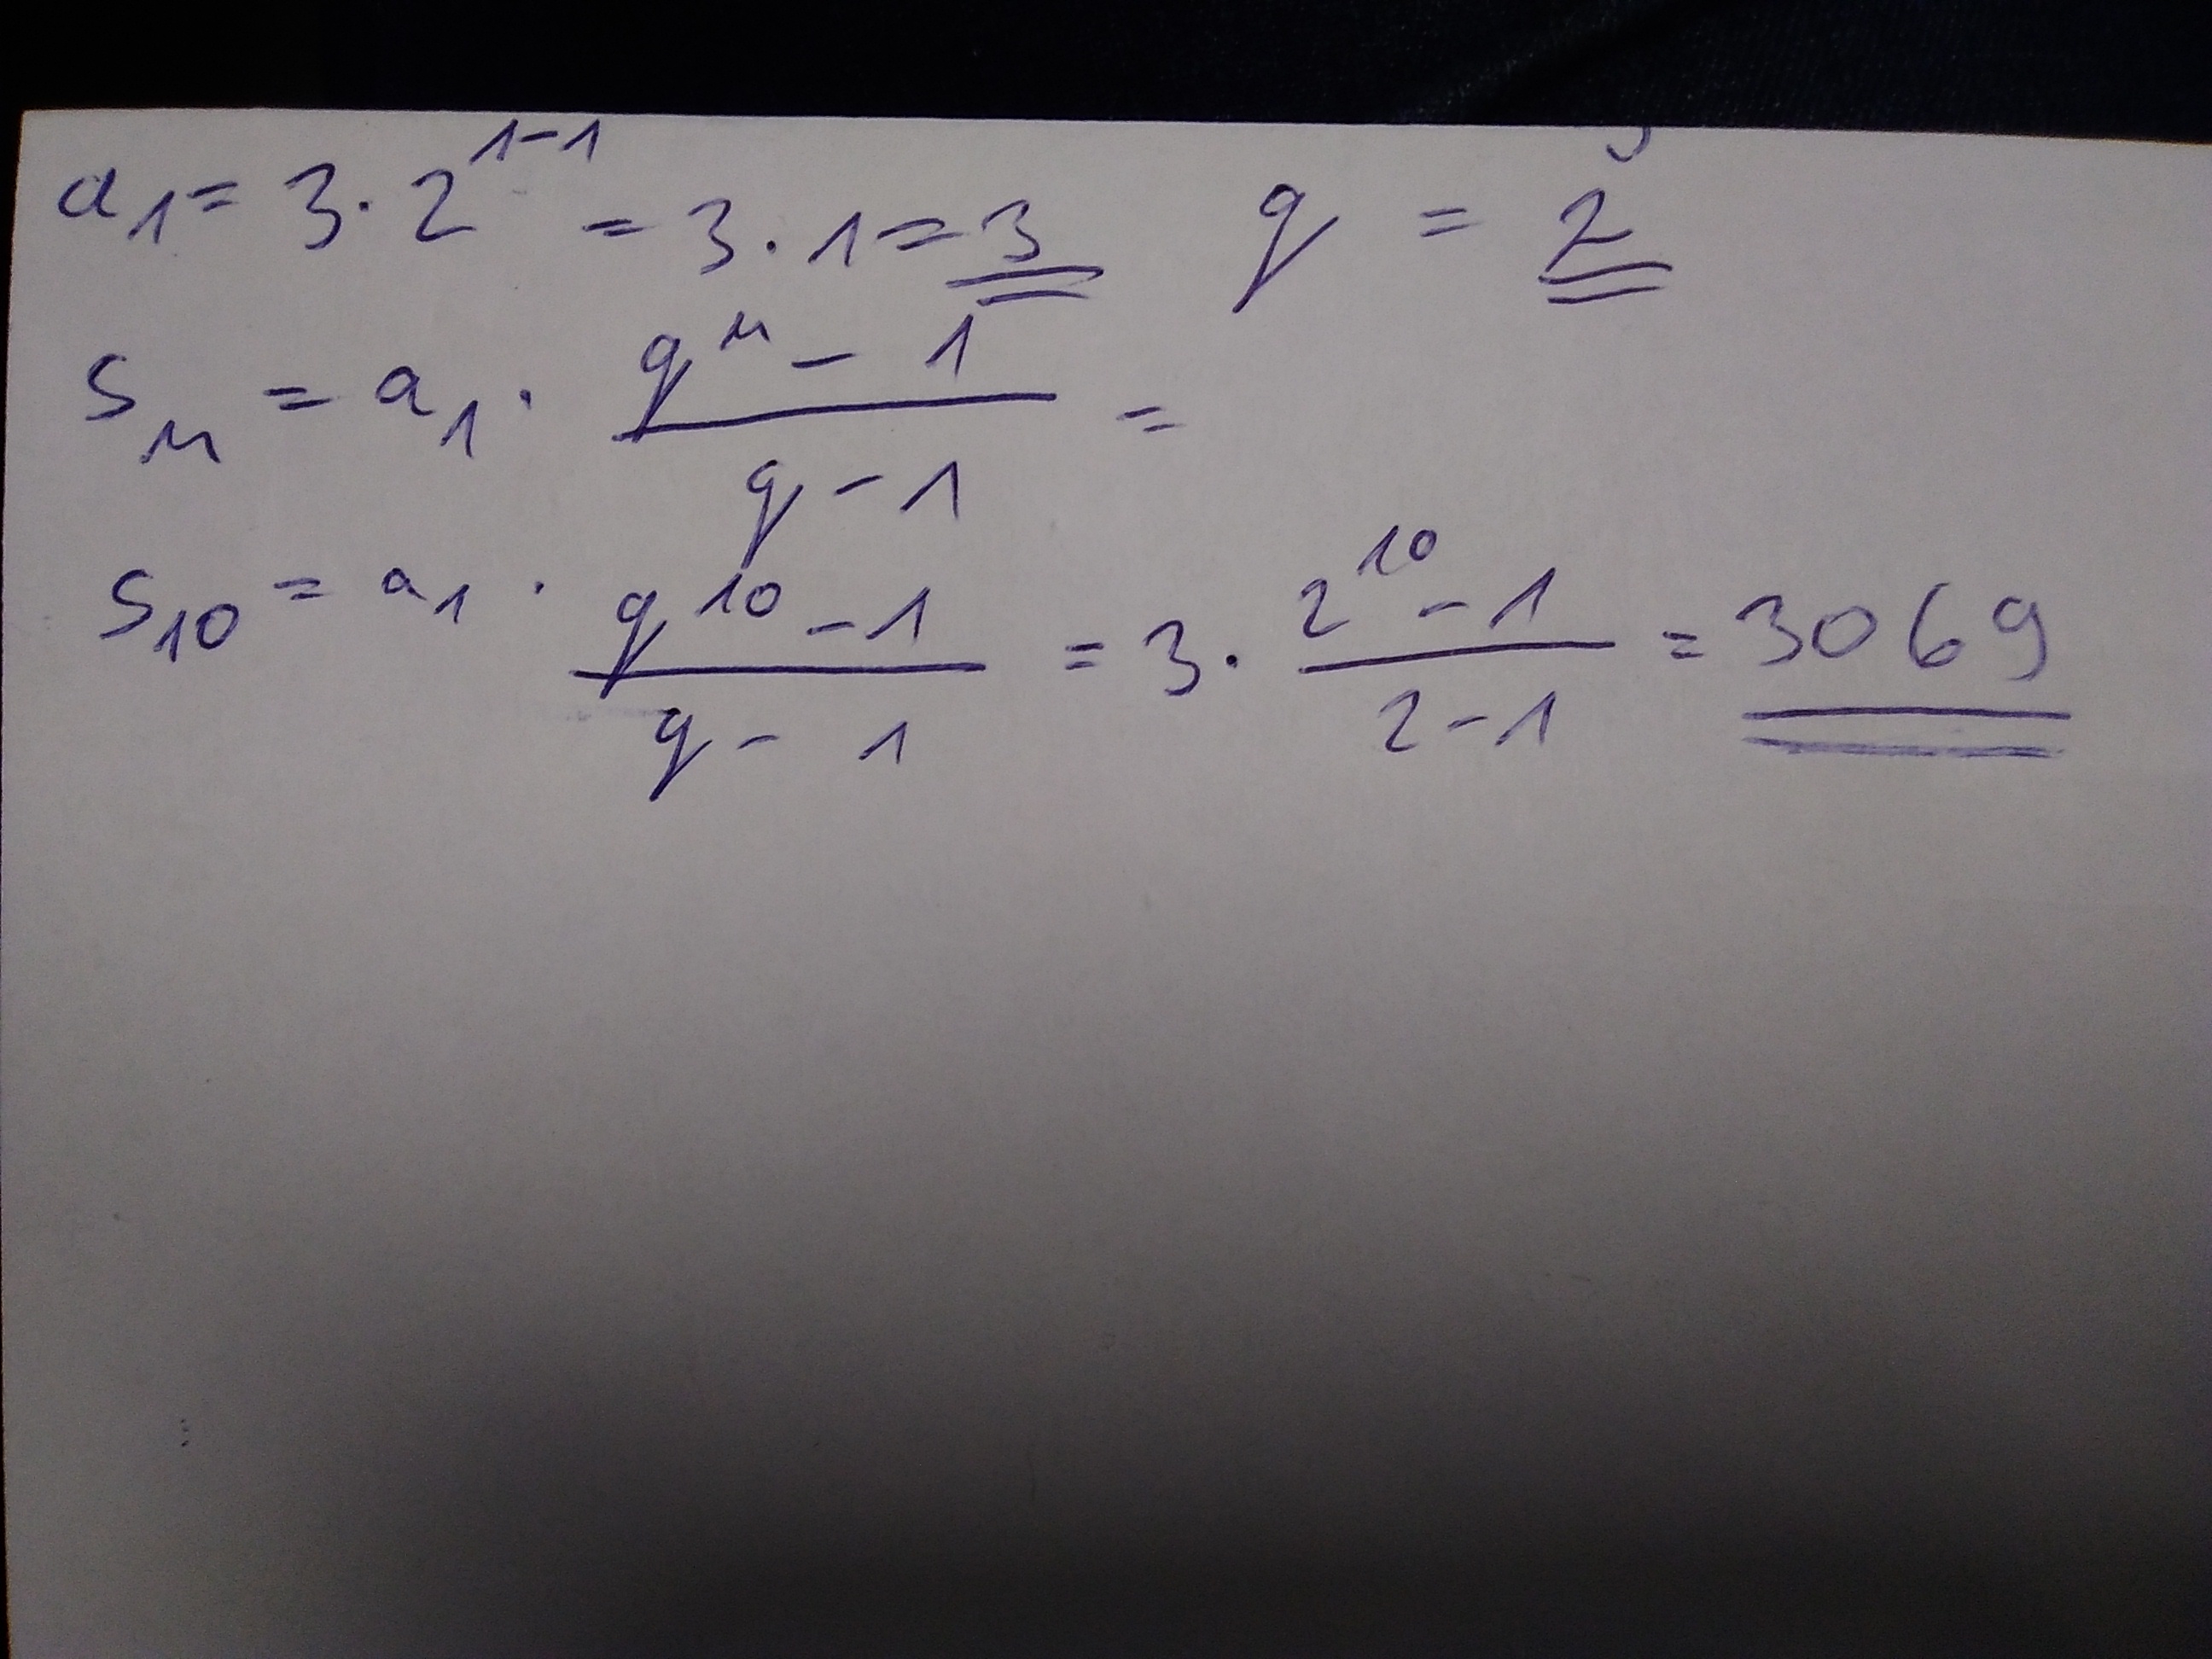 a₁ = 3 · 2¹⁻¹ = 3 · 1 = 3 q = 2
sₙ = a₁ · (qⁿ - 1)/(q - 1) =
s₁₀ = a₁ · (q¹⁰ - 1)/(q - 1) = 3 · (2¹⁰ - 1)/(2 - 1) = 3069